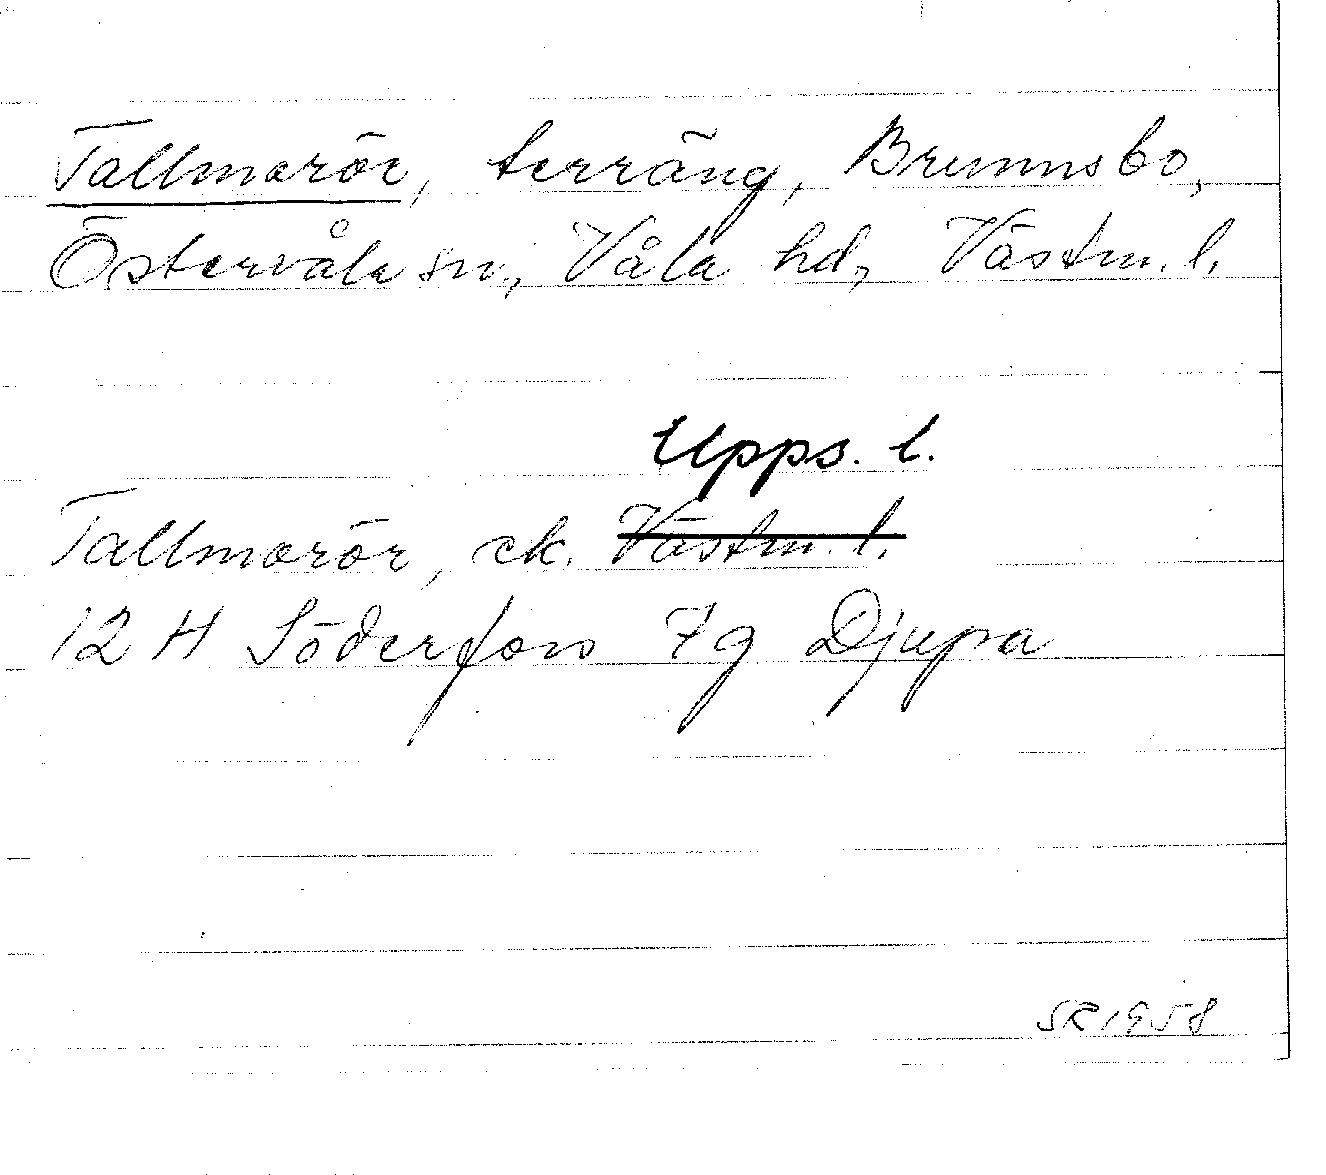 Tallmorör, terräng, Brunnsbo,
Östervåla sn., Våla hd, Västm. l.
Upps. l.
Tallmorör, ek. Västm. l.
12 H Söderfors 7g Djupa
SR 1958